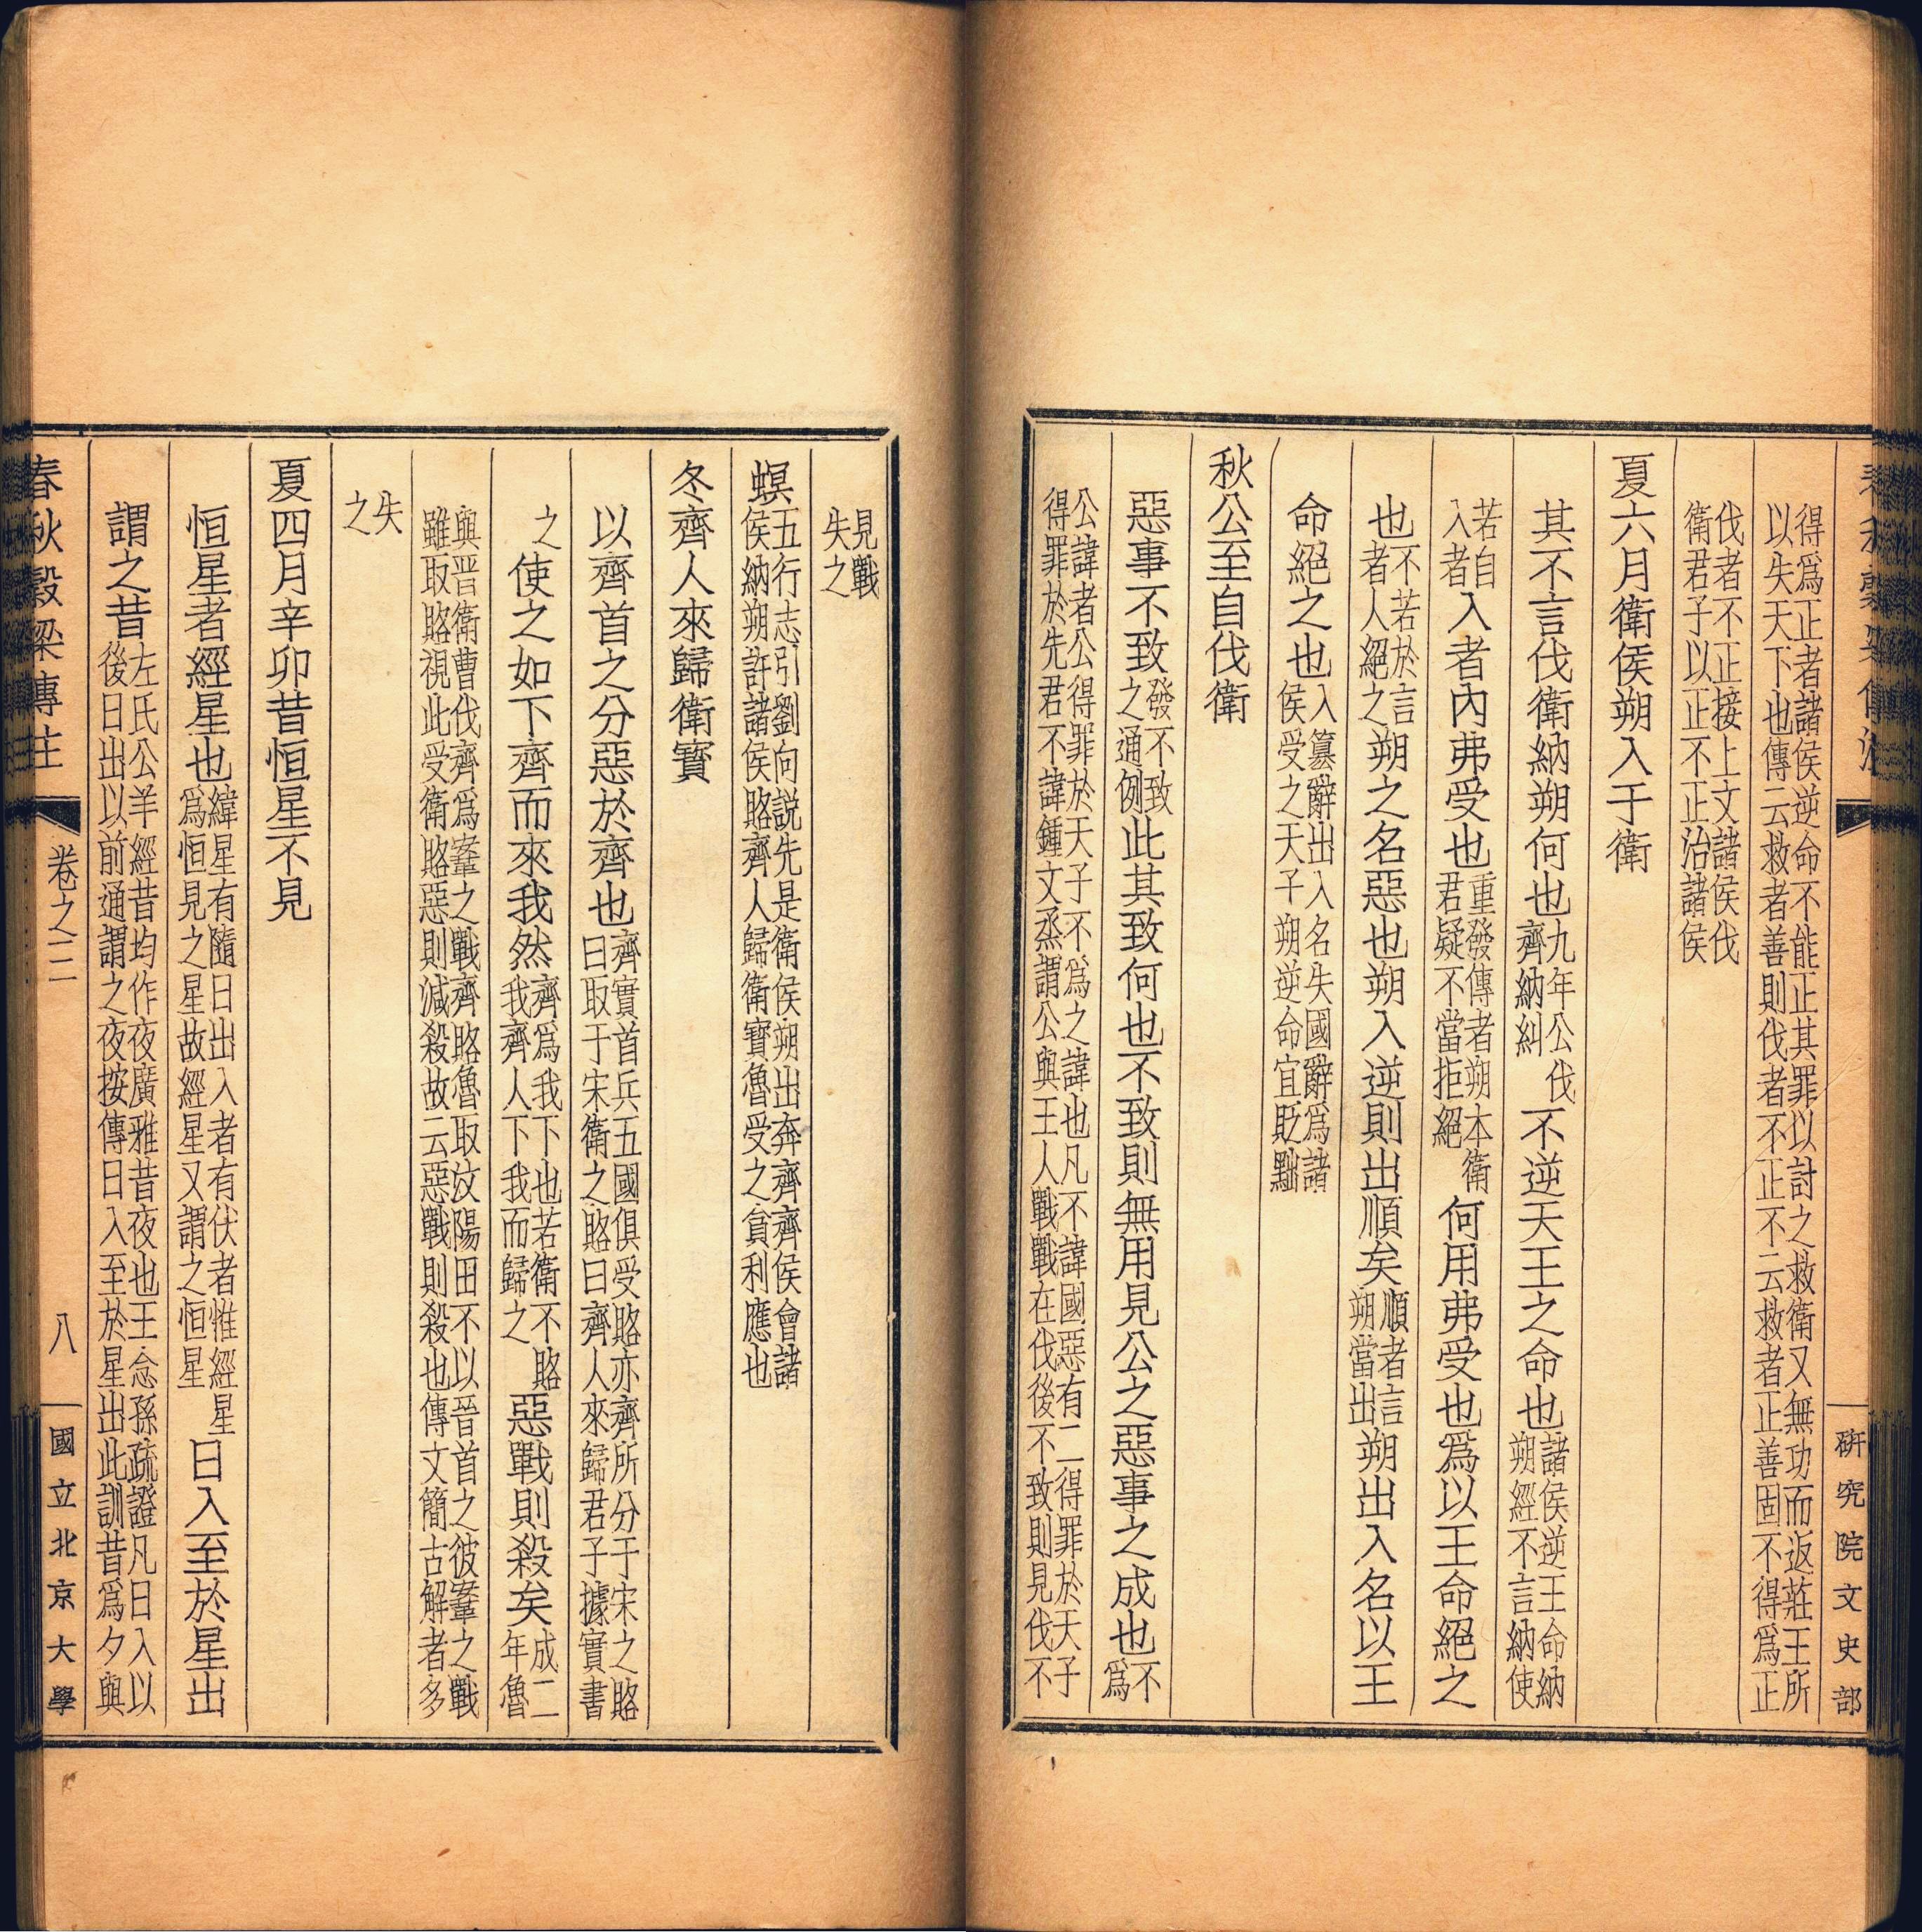 得爲正者諸侯逆命不能正其罪以討之救衛又無功而返莊王所
以失天下也傳云救者善則伐者不正不云救者正善固不得爲正
伐者不正接上文諸侯伐
衛君子以正不正治諸侯
夏六月衛侯朔入于衛
其不言伐衛納朔何也九年公伐齊納糾不逆天王之命也諸侯逆王命納朔經不言納使
若自入者入者內弗受也重發傳者朔本衛君疑不當拒絕何用弗受也爲以王命絕之
也不若於言者人絕之朔之名惡也朔入逆則出順矣順者言朔當出朔出入名以王
命絕之也入篡辭出入名失國辭爲諸侯受之天子朔逆命宜貶黜
秋公至自伐衛
惡事不致發不致之通例此其致何也不致則無用見公之惡事之成也不爲
公諱者公得罪於天子不爲之諱也凡不諱國惡有二得罪於天子
得罪於先君不諱鍾文烝謂公與王人戰戰在伐後不致則見伐不
研究院文史部
見戰
失之
螟五行志引劉向説先是衛侯朔出奔齊齊侯會諸侯納朔許諸侯賂齊人歸衛寶魯受之貪利應也
冬齊人來歸衛寶
以齊首之分惡於齊也齊實首兵五國俱受賂亦齊所分于宋之賂曰取于宋衛之賂曰齊人來歸君子據實書
之使之如下齊而來我然齊爲我下也若衛不賂我齊人下我而歸之惡戰則殺矣成二年魯
與晉衛曹伐齊爲鞌之戰齊賂魯取汶陽田不以晉首之彼鞌之戰
雖取賂視此受衛賂惡則減殺故云惡戰則殺也傳文簡古解者多
失
之
夏四月辛卯昔恒星不見
恒星者經星也緯星有隨日出入者有伏者惟經星爲恒見之星故經星又謂之恒星日入至於星出
謂之昔左氏公羊經昔均作夜廣雅昔夜也王念孫疏證凡日入以後日出以前通謂之夜按傳日入至於星出此訓昔爲夕與
春秋穀梁傳注 卷之二 八 國立北京大學